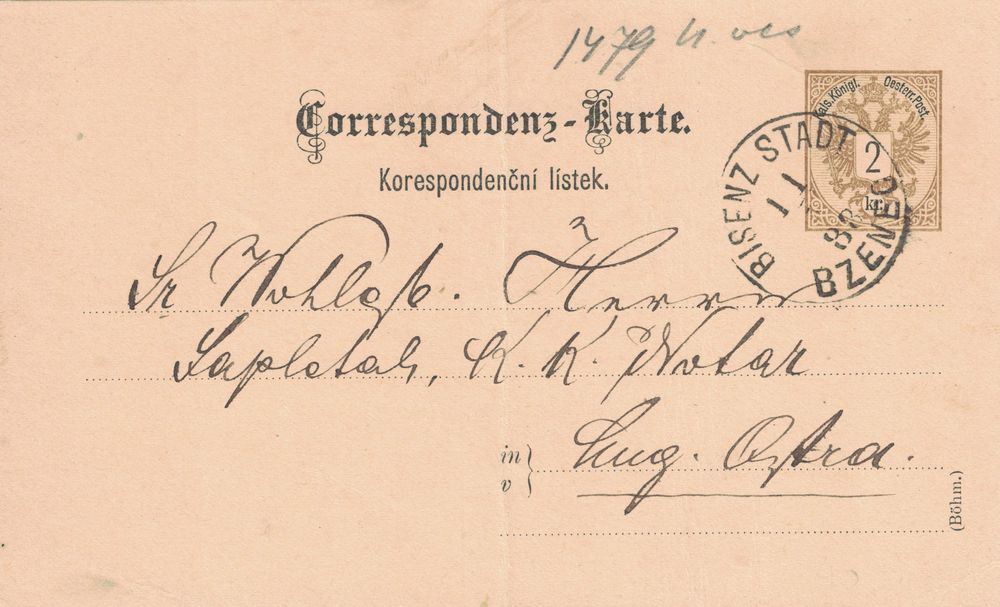 1479 U. ves
Kais. Königl. Oesterr. Post.
2
kr.
Correspondenz-Karte.
Korespondenční lístek.
BISENZ STADT
BZENEC
Sr Wohlgb. Herrn
Zapletal, K. K. Notar
in
v
Ung. Ostra.
(Böhm.)